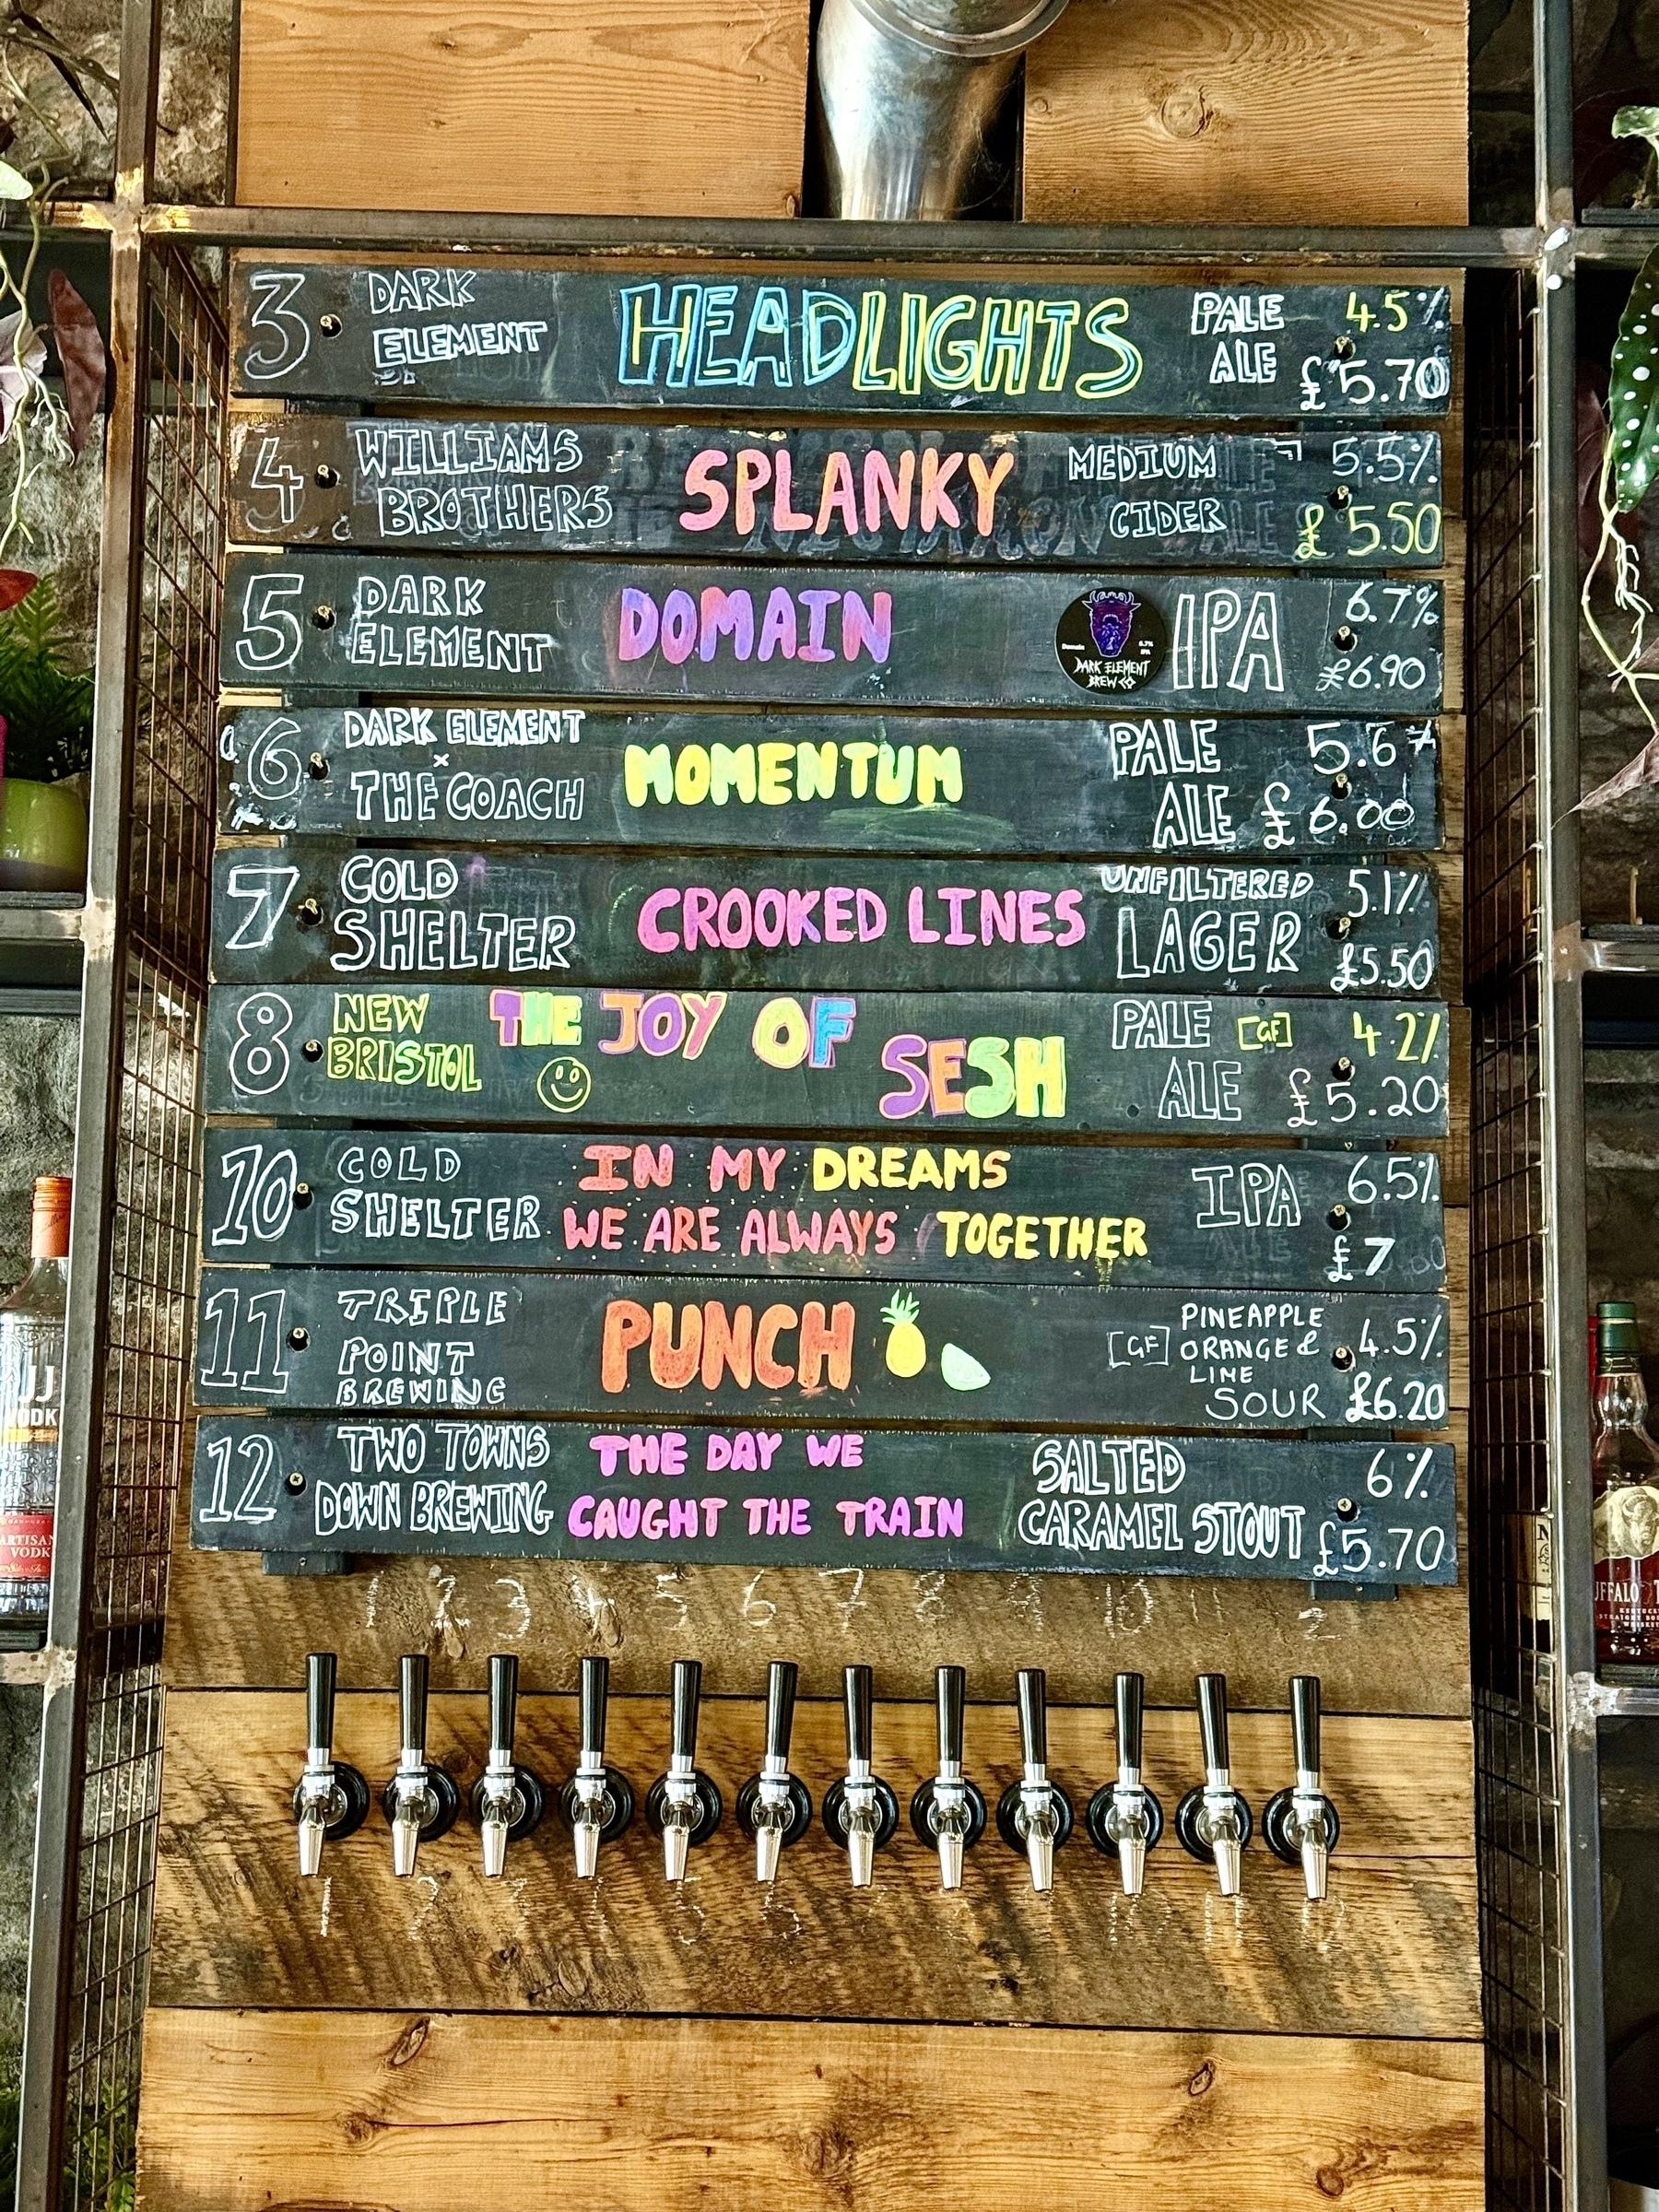 3 DARK ELEMENT HEADLIGHTS PALE ALE 4.5% £5.70
4 WILLIAMS BROTHERS SPLANKY MEDIUM CIDER 5.5% £5.50
5 DARK ELEMENT DOMAIN IPA 6.7% £6.90
Domain 6.7% IPA
DARK ELEMENT
BREW CO
6 DARK ELEMENT x THE COACH MOMENTUM PALE ALE 5.6% £6.00
7 COLD SHELTER CROOKED LINES UNFILTERED LAGER 5.1% £5.50
8 NEW BRISTOL THE JOY OF SESH PALE ALE [GF] 4.2% £5.20
10 COLD SHELTER IN MY DREAMS WE ARE ALWAYS TOGETHER IPA 6.5% £7
11 TRIPLE POINT BREWING PUNCH [GF] PINEAPPLE ORANGE & LIME SOUR 4.5% £6.20
12 TWO TOWNS DOWN BREWING THE DAY WE CAUGHT THE TRAIN SALTED CARAMEL STOUT 6% £5.70
1 2 3 4 5 6 7 8 9 10 11 2
JJ
VODK
ARTISAN
VODK
UFFALO T
KENTUCK
STRAIGHT BOU
WHISKE